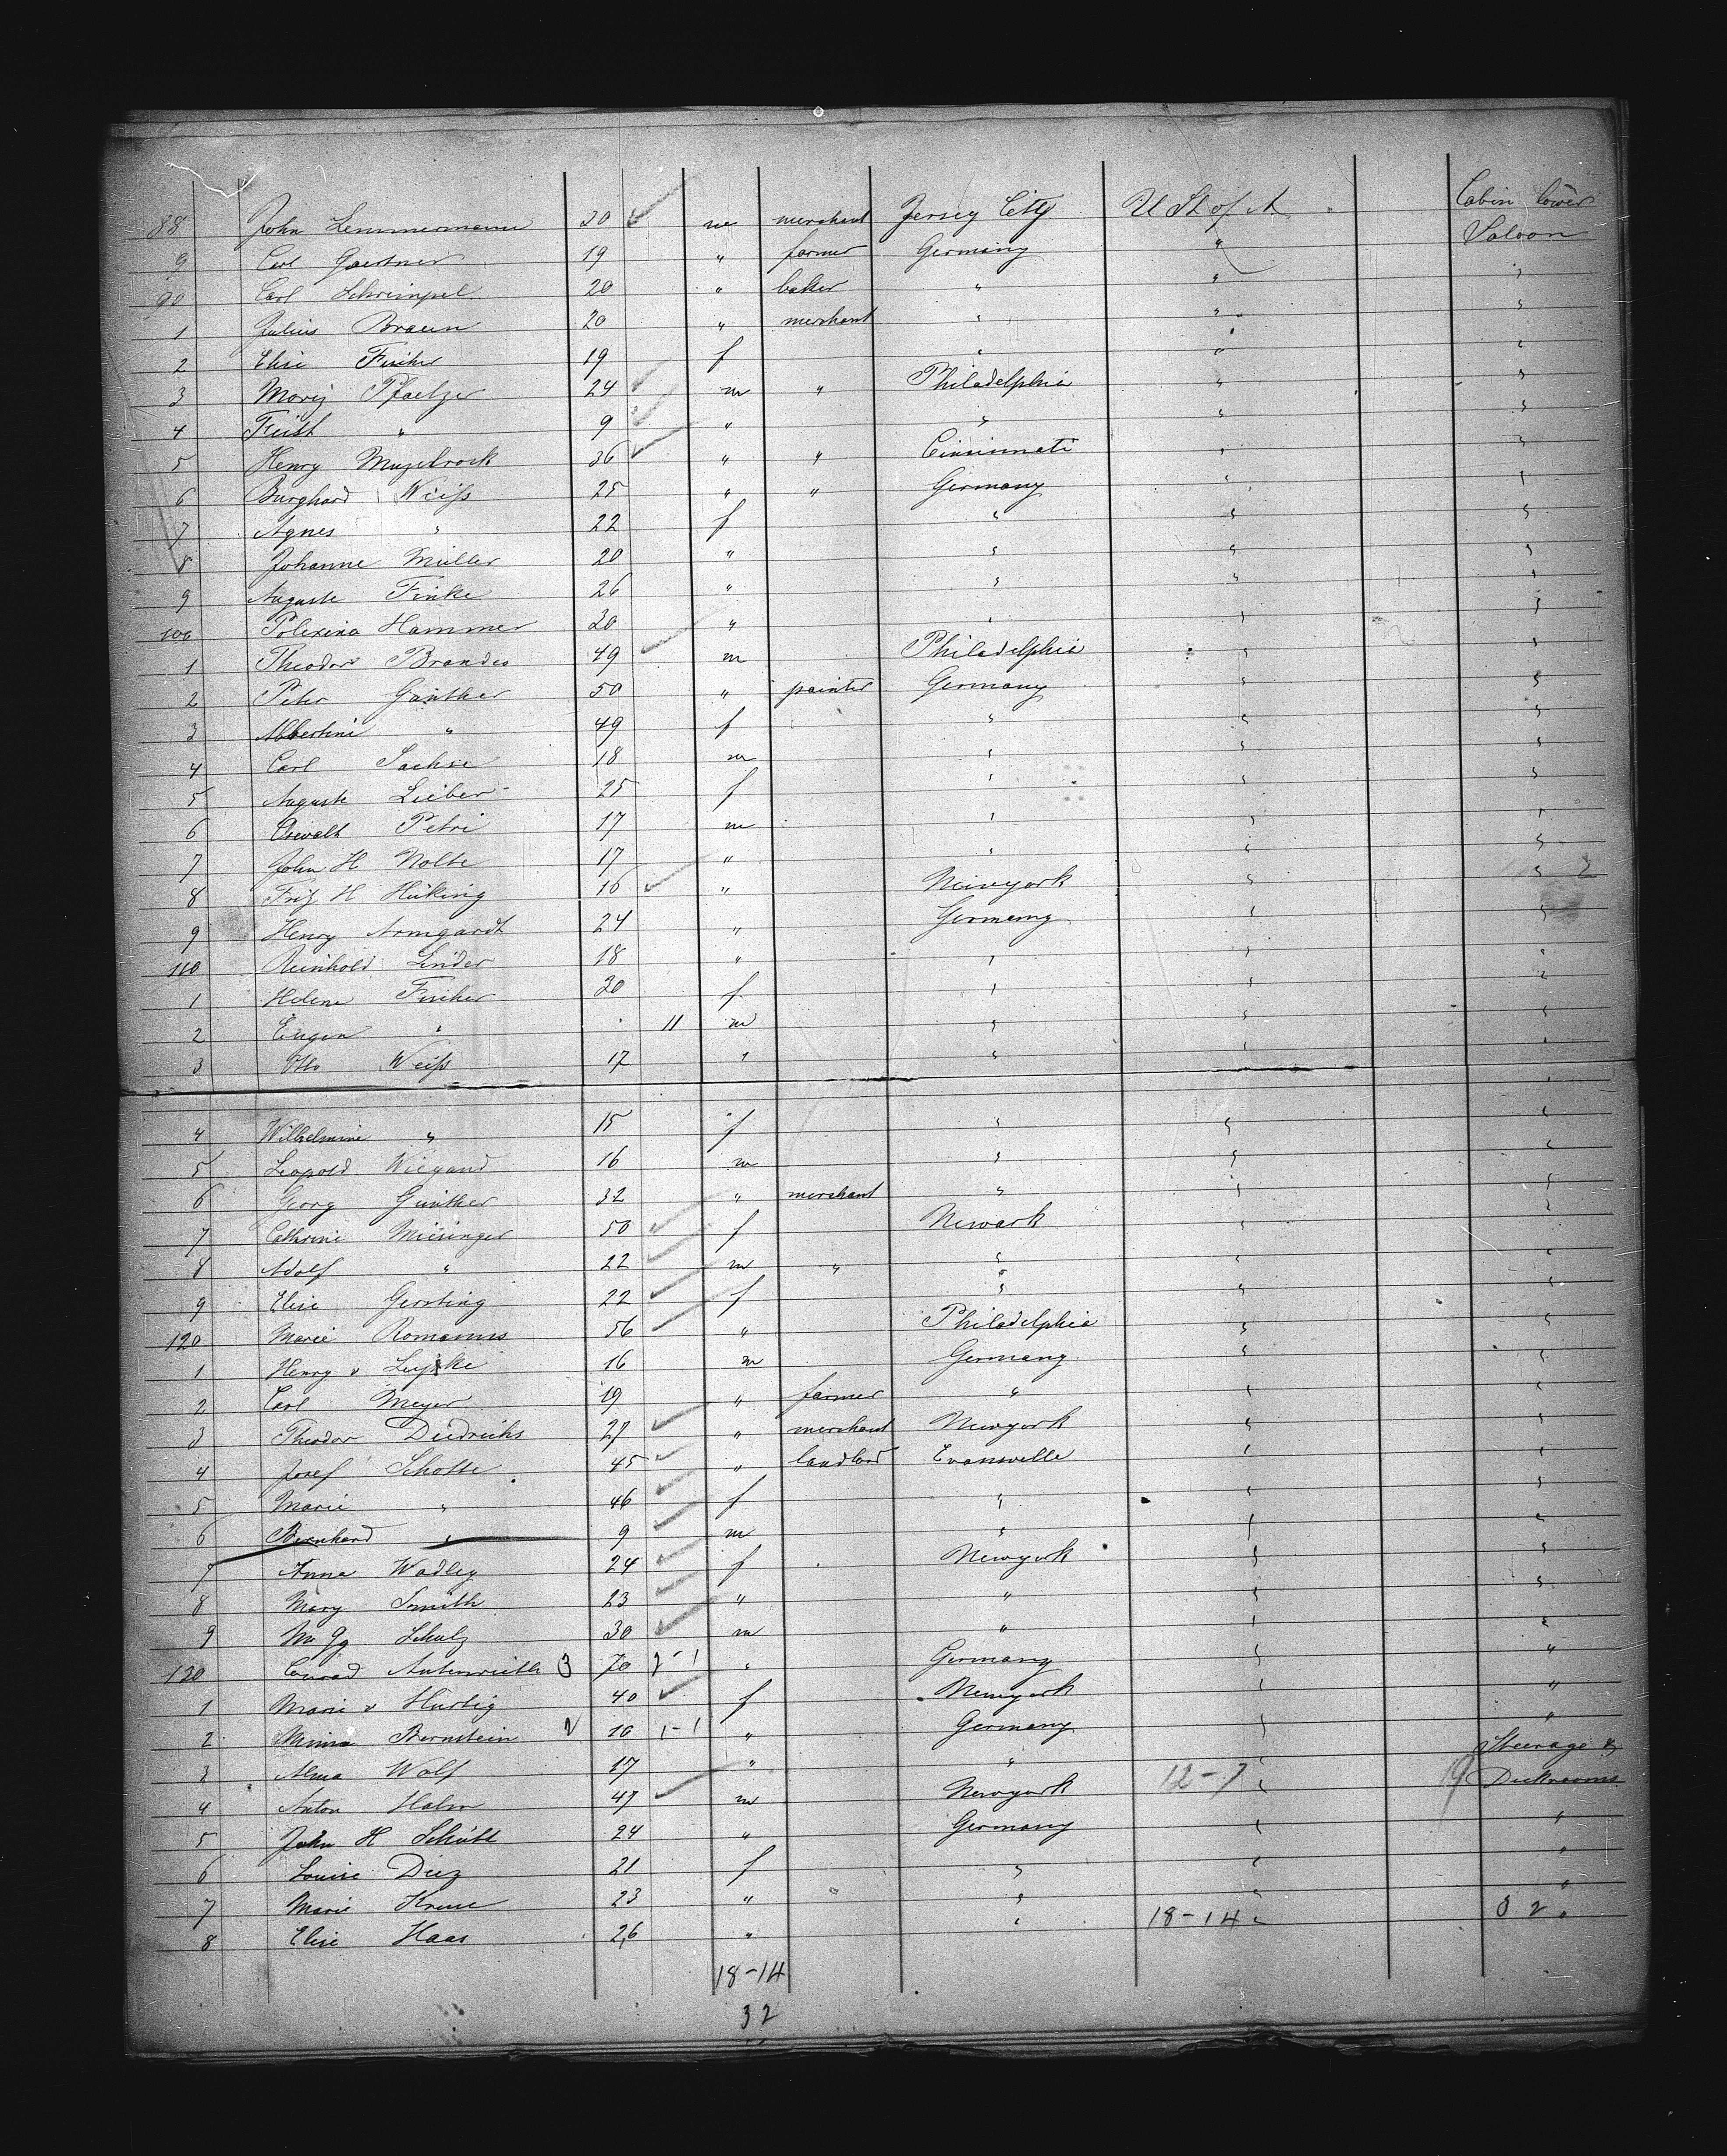 88 John Lemmermann 20 m merchant Jersey City U St of A Cabin lower
9 Carl Gaertner 19 " farmer Germany " Saloon
90 Carl Schrimpel 20 " baker " " "
1 Julius Braun 20 " merchant " " "
2 Elise Fischer 19 f " " "
3 Moriz Pfaelzer 24 m " Philadelphia " "
4 Feist " 9 " " " "
5 Henry 36 " " Cincinnati " "
6 Burghard Weiß 25 " " Germany " "
7 Agnes " 22 f " " "
8 Johanne Müller 20 " " " "
9 Auguste Finke 26 " " " "
100 Polexina Hammer 20 " " " "
1 Theodor Brandes 49 m Philadelphia " "
2 Peter Günther 50 " painter Germany " "
3 Albertine " 49 f " " "
4 Carl Sachse 18 m " " "
5 Auguste Lieber 25 f " " "
6 Oswalt Petri 17 m " " "
7 John H Nolte 17 " " " "
8 Friz H Hüking 16 " Newyork " " 2
9 Henry Armgardt 24 " Germany " "
110 Reinhold Linder 18 " " " "
1 Helene Fischer 30 f " " "
2 Eugen " 11 m " " "
3 Otto Weiß 17 " " " "
4 Wilhelmine " 15 f " " "
5 Leopold Wiegand 16 m " " "
6 Georg Günther 32 " merchant " " "
7 Cathrine Meisinger 50 f Newark " "
8 Adolf " 22 m " " " "
9 Elise Gersting 22 f " " "
120 Marie Romanus 56 " Philadelphia " "
1 Henry v 16 m Germany " "
2 Carl Meyer 19 " farmer " " "
3 Theodor Diedrichs 27 " merchant Newyork " "
4 Josef Schotte 45 " landlord Evansville " "
5 Marie " 46 f " " "
6 Bernhard " 9 m " " "
7 Anna Wadley 24 f Newyork " "
8 Mary Smith 23 " " " "
9 Schulz 30 m " " "
120 Conrad Autenrieth 3 70 2-1 " Germany " "
1 Marie v Hurtig 40 f Newyork " "
2 Minna Bernstein 2 10 1-1 " Germany " "
3 Alma Wolf 17 " " " Steerage &
4 Anton Hahn 47 m Newyork 12-7 " 19 Deckrooms
5 John H Schütt 24 " Germany " "
6 Louise Diez 21 f " " "
7 Marie Kruse 23 " " " "
8 Elise Haas 26 " " 18-14 " 32 "
18-14
32